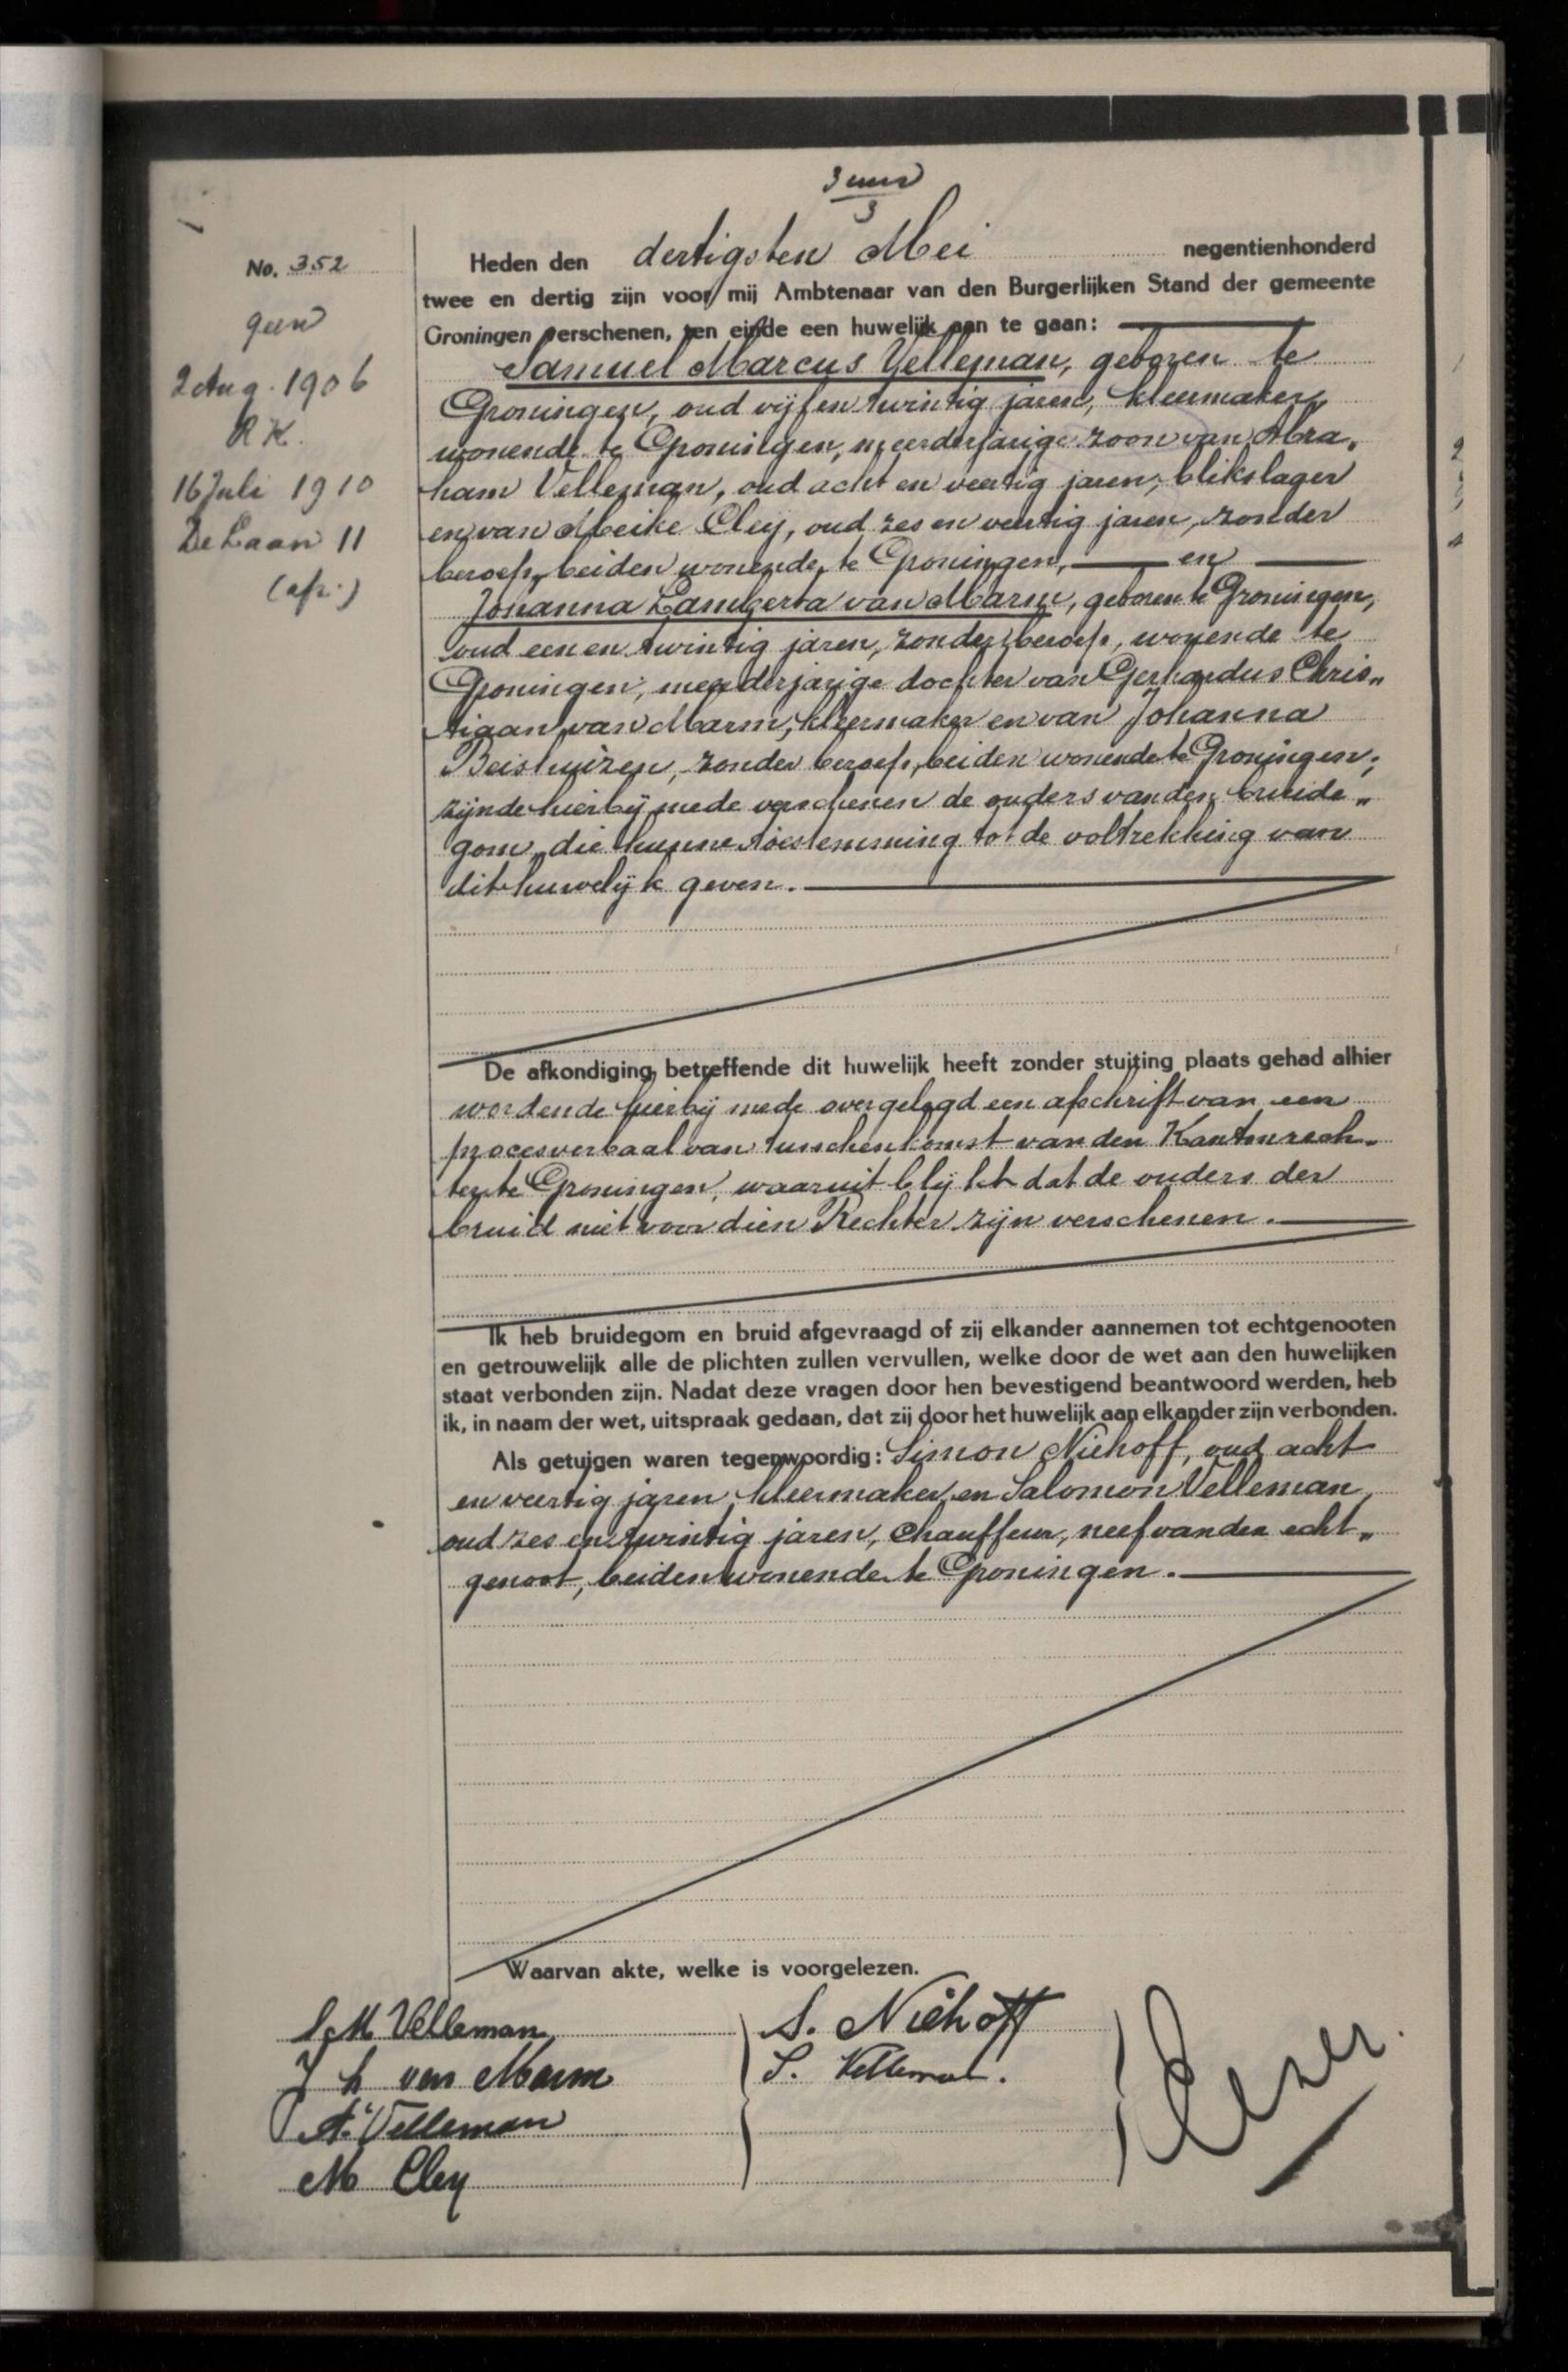 3 uur
3
No. 352
geen
2 Aug. 1906
RK.
16 Juli 1910
De Laan 11
(afr.)
Heden den dertigsten Mei negentienhonderd
twee en dertig zijn voor mij Ambtenaar van den Burgerlijken Stand der gemeente
Groningen verschenen, ten einde een huwelijk aan te gaan:
Samuel Marcus Velleman, geboren te
Groningen, oud vijf en twintig jaren, kleermaker,
wonende te Groningen, meerderjarige zoon van Abra„
ham Velleman, oud acht en veertig jaren, blikslager
en van Meike Cleij, oud zes en veertig jaren, zonder
beroep, beiden wonende te Groningen, en
Johanna Lamberta van Marm, geboren te Groningen,
oud een en twintig jaren, zonder beroep, wonende te
Groningen, meerderjarige dochter van Gerhardus Chris„
tiaan van Marm, kleermaker en van Johanna
Beishuizen, zonder beroep, beiden wonende te Groningen;
zijnde hierbij mede verschenen de ouders van den bruide„
gom, die hunne toestemming tot de voltrekking van
dit huwelijk geven.
De afkondiging betreffende dit huwelijk heeft zonder stuiting plaats gehad alhier
wordende hierbij mede overgelegd een afschrift van een
procesverbaal van tusschenkomst van den Kantonrech„
ter te Groningen, waaruit blijkt dat de ouders der
bruid niet voor dien Rechter zijn verschenen.
Ik heb bruidegom en bruid afgevraagd of zij elkander aannemen tot echtgenooten
en getrouwelijk alle de plichten zullen vervullen, welke door de wet aan den huwelijken
staat verbonden zijn. Nadat deze vragen door hen bevestigend beantwoord werden, heb
ik, in naam der wet, uitspraak gedaan, dat zij door het huwelijk aan elkander zijn verbonden.
Als getuigen waren tegenwoordig: Simon Niehoff, oud acht
en veertig jaren, kleermaker, en Salomon Velleman,
oud zes en twintig jaren, chauffeur, neef van den echt„
genoot, beiden wonende te Groningen.
Waarvan akte, welke is voorgelezen.
S. M. Velleman
J L van Marm
A. Velleman
M Cley
S. Niehoff
S. Velleman.